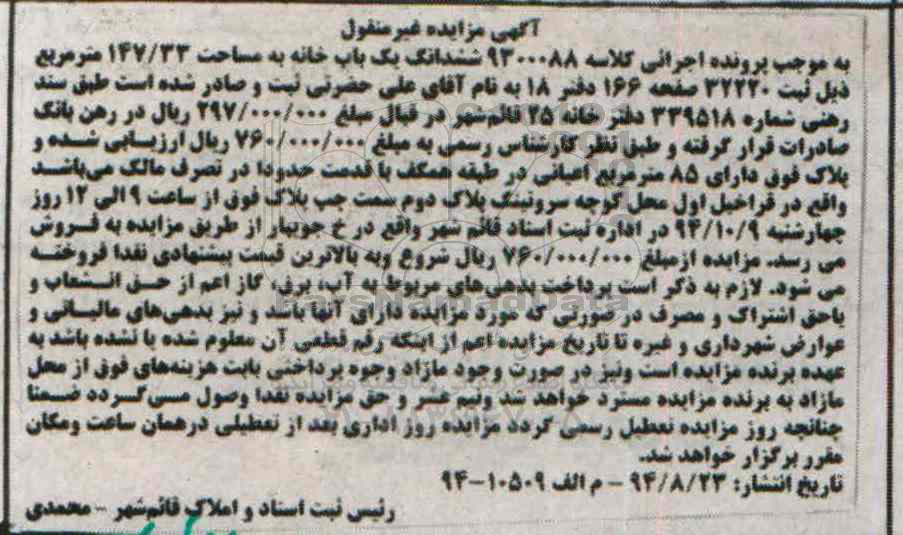 آگهی مزایده غیرمنقول
به موجب پرونده اجرائی کلاسه ۹۳۰۰۰۸۸ ششدانگ یک باب خانه به مساحت ۱۴۷/۳۳ مترمربع
ذیل ثبت ۳۲۲۲۰ صفحه ۱۶۶ دفتر ۱۸ به نام آقای علی حضرتی ثبت و صادر شده است طبق سند
رهنی شماره ۳۳۹۵۱۸ دفتر خانه ۲۵ قائم‌شهر در قبال مبلغ ۲۹۷/۰۰۰/۰۰۰ ریال در رهن بانک
صادرات قرار گرفته و طبق نظر کارشناس رسمی به مبلغ ۷۶۰/۰۰۰/۰۰۰ ریال ارزیابی شده و
پلاک فوق دارای ۸۵ مترمربع اعیانی در طبقه همکف با قدمت حدودا در تصرف مالک می‌باشد
واقع در قراخیل اول محل کوچه سروتینگ پلاک دوم سمت چپ پلاک فوق از ساعت ۹ الی ۱۲ روز
چهارشنبه ۹۴/۱۰/۹ در اداره ثبت اسناد قائم شهر واقع در خ جویبار از طریق مزایده به فروش
می رسد. مزایده ازمبلغ ۷۶۰/۰۰۰/۰۰۰ ریال شروع وبه بالاترین قیمت پیشنهادی نقدا فروخته
می شود. لازم به ذکر است پرداخت بدهی‌های مربوط به آب، برق، گاز اعم از حق انشعاب و
یاحق اشتراک و مصرف در صورتی که مورد مزایده دارای آنها باشد و نیز بدهی‌های مالیاتی و
عوارض شهرداری و غیره تا تاریخ مزایده اعم از اینکه رقم قطعی آن معلوم شده یا نشده باشد به
عهده برنده مزایده است ونیز در صورت وجود مازاد وجوه پرداختی بابت هزینه‌های فوق از محل
مازاد به برنده مزایده مسترد خواهد شد ونیم عشر و حق مزایده نقدا وصول می‌گردد ضمنا
چنانچه روز مزایده تعطیل رسمی گردد مزایده روز اداری بعد از تعطیلی درهمان ساعت ومکان
مقرر برگزار خواهد شد.
تاریخ انتشار: ۹۴/۸/۲۳ - م الف ۱۰۵۰۹-۹۴
رئیس ثبت اسناد و املاک قائم‌شهر - محمدی
ParsNamadData